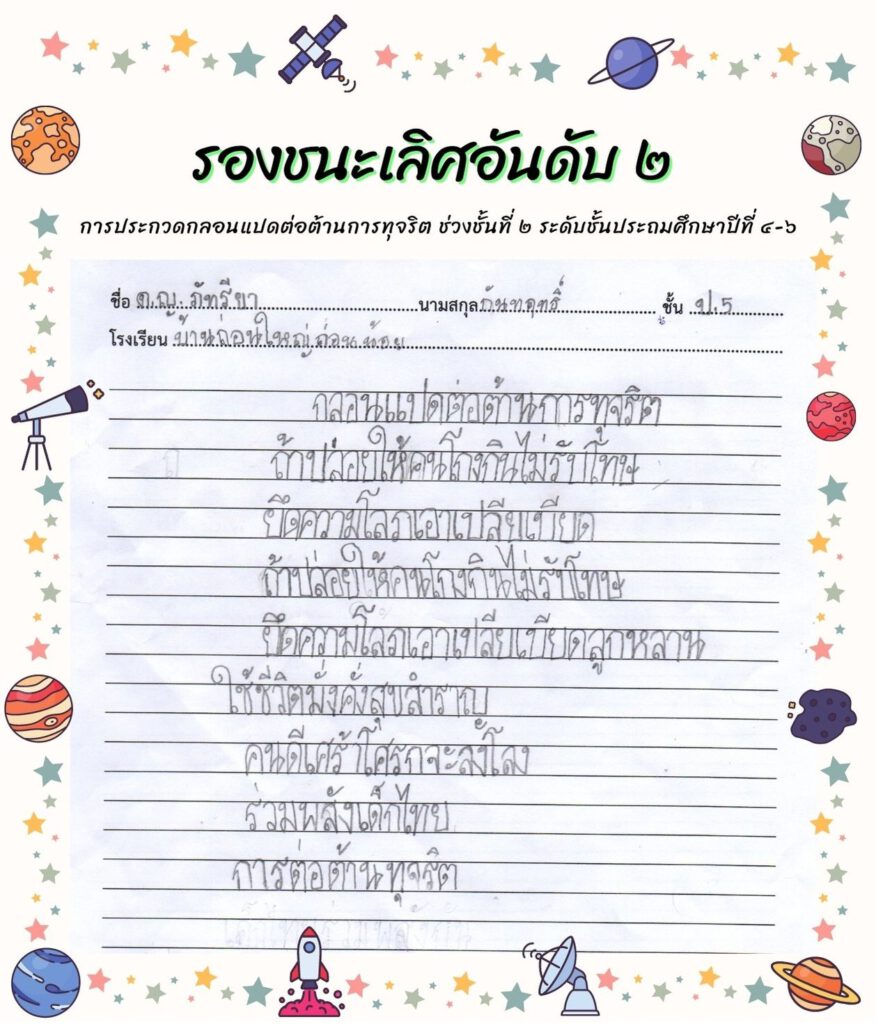 รองชนะเลิศอันดับ ๒
การประกวดกลอนแปดต่อต้านการทุจริต ช่วงชั้นที่ ๒ ระดับชั้นประถมศึกษาปีที่ ๔-๖
ชื่อ ด.ญ. ภัทรียา นามสกุล กันทฤทธิ์ ชั้น ป.5
โรงเรียน บ้านถ่อนใหญ่ถ่อนน้อย
กลอนแปดต่อต้านการทุจริต
ถ้าปล่อยให้คนโกงกินไม่รับโทษ
ยึดความโลภเอาเปลียเบียด
ถ้าปล่อยให้คนโกงกินไม่รับโทษ
ยึดความโลภเอาเปลียเบียดลูกหลาน
ใช้ชีวิตมั่งคั่งสุขสำราญ
คนดีเศร้าโศรกจะลงโลง
ร่วมพลังเด็กไทย
การต่อต้านทุจริต